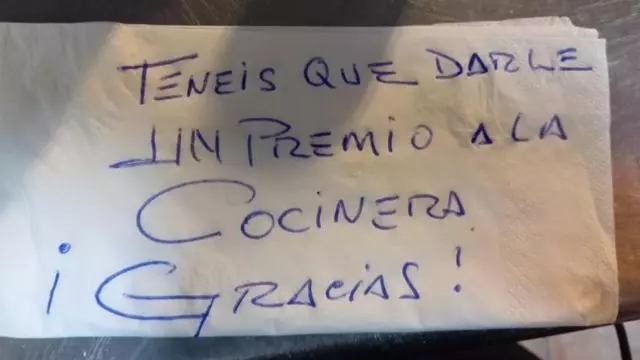 TENEIS QUE DARLE
UN PREMIO A LA
COCINERA
¡GRACIAS!